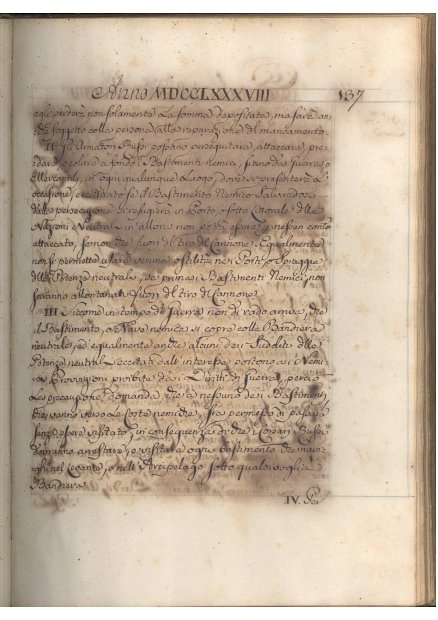 Anno MDCCLXXXVIII 137
egli perderà non solamente la somma depositata, ma sarà an-
che soggetto colla persona alla reparazione del mancamento.
II. Gli Armatori Russi possono perseguitare, attaccare, pre-
dare, e colare a fondo i Bastimenti nemici, siano da Guerra, o
Mercantili, in ogni qualunque Luogo dove si presenterà l'
occasione, eccettuato se il Bastimento Nemico salvandosi
dalla persecuzione si refugierà in Porto, o sotto Littorale delle
Nazioni Neutrali, in allora non potrà essere in nessun conto
attaccato, se non che fuori del tiro di Cannone. Egualmente
non si permette usare veruna ostilità nei Porti, o Spiagge
delle Potenze neutrali, se prima i Bastimenti Nemici non
saranno allontanati fuori del tiro del Cannone.
III. Siccome in tempo di Guerra non di rado arriva, che
il Bastimento, o Nave nemica si copre colla Bandiera
neutrale, ed egualmente anche alcuni dei Sudditi delle
Potenze neutrali eccitati dall'interesse portono ai Nemi-
ci Provvigioni proibite dai Diritti di Guerra, perciò
la precauzione domanda, che a nessuno dei Bastimenti
che vanno verso le Coste nemiche, sia permesso di passare
senza essere visitato; in conseguenza di che i Corsari Russi
dovranno arrestare, e visitare ogni Bastimento che navi-
ghi nel Levante, o nell'Arcipelago sotto qualsivoglia
Bandiera.
IV. Per